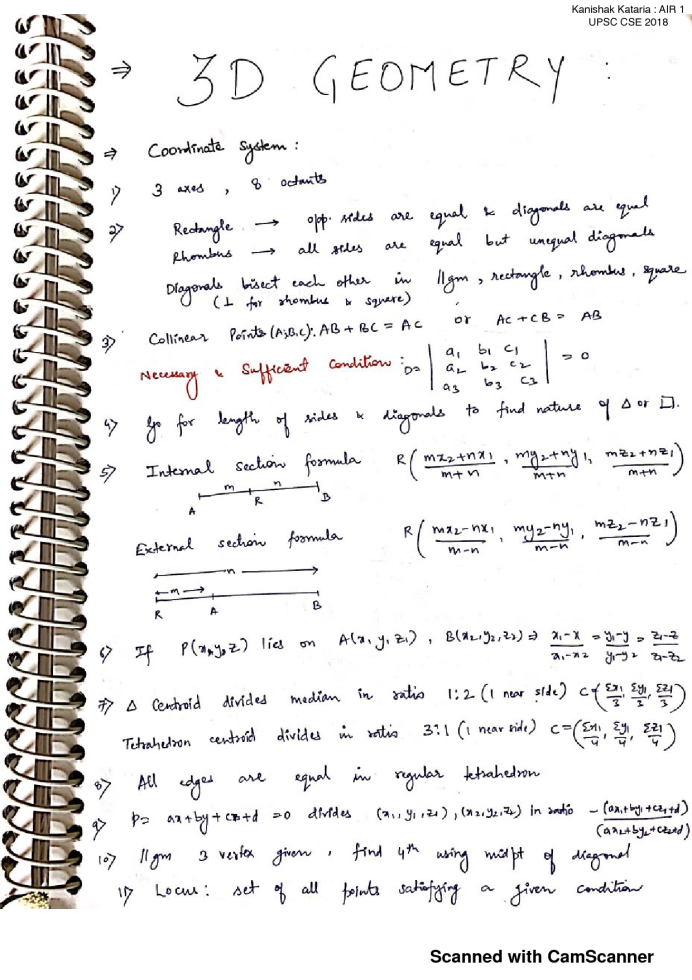 Kanishak Kataria : AIR 1
UPSC CSE 2018
⇒ 3D GEOMETRY :
⇒ Coordinate System :
1) 3 axes , 8 octants
2) Rectangle → opp. sides are equal & diagonals are equal
Rhombus → all sides are equal but unequal diagonals
Diagonals bisect each other in ||gm , rectangle , rhombus , square
(⊥ for rhombus & square)
3) Collinear Points (A,B,C): AB + BC = AC or AC + CB = AB
Necessary & Sufficient Condition : D = | a1 b1 c1 | = 0
a2 b2 c2
a3 b3 c3
4) Go for length of sides & diagonals to find nature of Δ or □.
5) Internal section formula R ( (mx2+nx1)/(m+n) , (my2+ny1)/(m+n) , (mz2+nz1)/(m+n) )
m n
A R B
External section formula R ( (mx2-nx1)/(m-n) , (my2-ny1)/(m-n) , (mz2-nz1)/(m-n) )
n
m
R A B
6) If P(x,y,z) lies on A(x1,y1,z1) , B(x2,y2,z2) ⇒ (x1-x)/(x1-x2) = (y1-y)/(y1-y2) = (z1-z)/(z1-z2)
7) Δ Centroid divides median in ratio 1:2 (1 near side) C = (Σx1/3, Σy1/3, Σz1/3)
Tetrahedron centroid divides in ratio 3:1 (1 near side) C = (Σx1/4, Σy1/4, Σz1/4)
8) All edges are equal in regular tetrahedron
9) P = ax+by+cz+d = 0 divides (x1,y1,z1) , (x2,y2,z2) in ratio -(ax1+by1+cz1+d)/(ax2+by2+cz2+d)
10) ||gm 3 vertex given , find 4th using midpt of diagonal
11) Locus : set of all points satisfying a given condition
Scanned with CamScanner